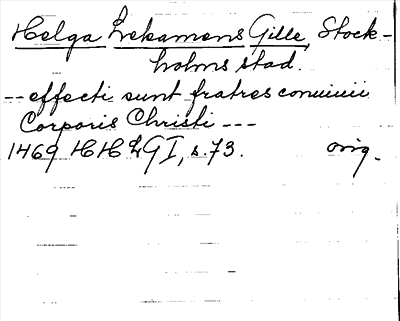 Helga Lekamens Gille, Stock-
holms stad.
-- effecti sunt fratres conuiuii
Corporis Christi ---
1469 HH LG I, s. 73. orig.